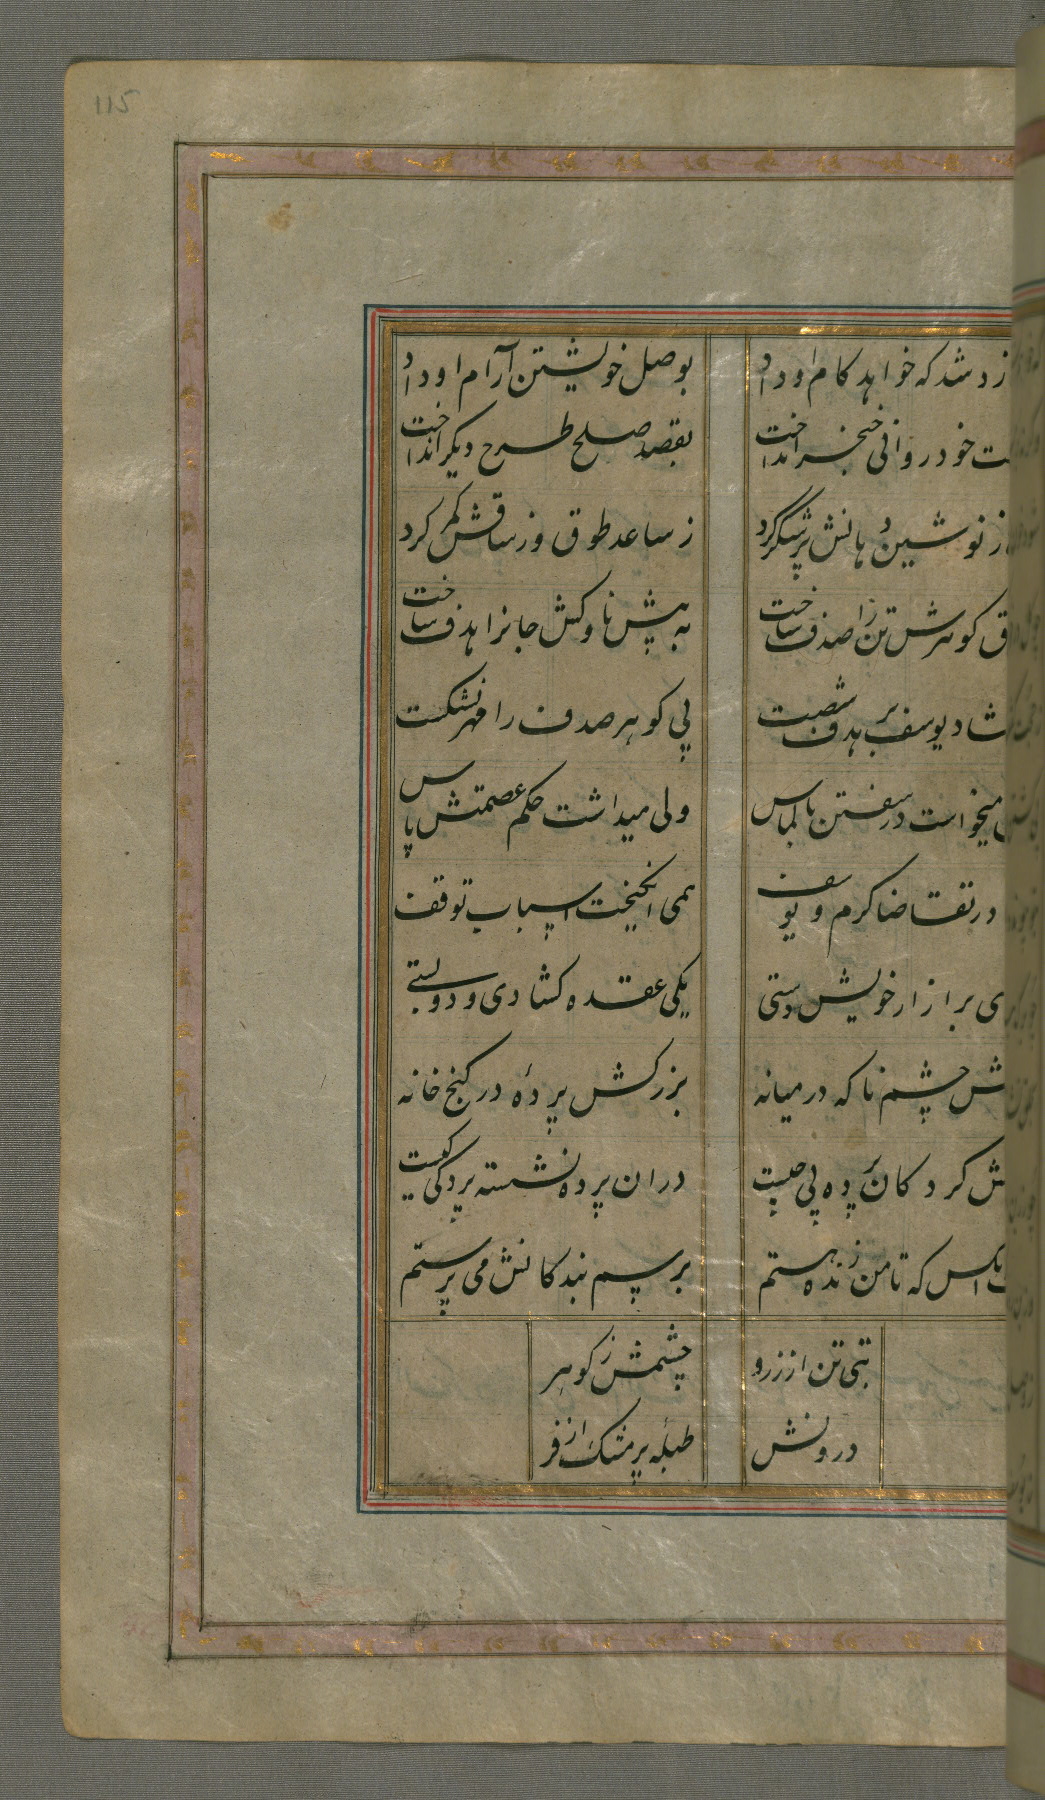 115
زد شد که خواهد کام او داد بوصل خویشتن آرام او داد
خود روانی خنجر انداخت بقصد صلح طرح دیکر انداخت
ز نوشین دهانش پر شکر کرد ز ساعد طوق وز ساقش کمر کرد
کوهرش تن را صدف ساخت به پیش ناوکش جانرا هدف ساخت
یوسف بر هدف شصت پی کوهر صدف را مهر نشکست
میخواست در سفتن بالماس ولی میداشت حکم عصمتش پاس
در تقاضا کرم و یوسف همی انکیخت اسباب توقف
بر ازار خویش دستی یکی عقده کشادی و دو بستی
چشم ناکه در میانه بزرکش پردهٔ در کنج خانه
کرد کان پرده پی چیست دران پرده نشسته پردکی کیست
انکس که تا من زنده هستم برسم بندکانش می پرستم
بتی تن از زر و چشمش ز کوهر
درونش طبلهٔ پر مشک اذفر